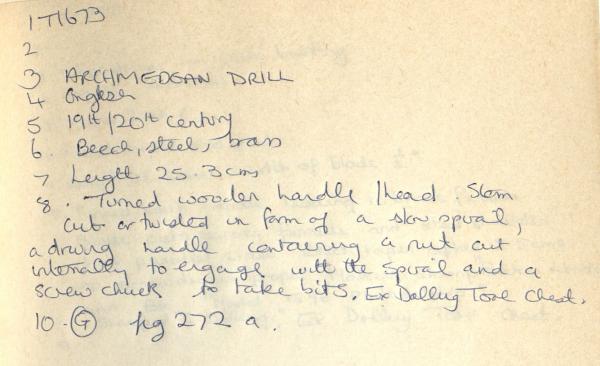 1 T1673
2
3 ARCHMEDEAN DRILL
4 English
5 19th/20th century
6. Beech, steel, brass
7 Length 25.3 cms
8. Turned wooden handle/head, Stem
cut or twisted in form of a slow spiral,
a driving handle containing a nut cut
internally to engage with the spiral and a
screw chuck to take bits. Ex Dalling Tool Chest.
10. G pg 272 a.